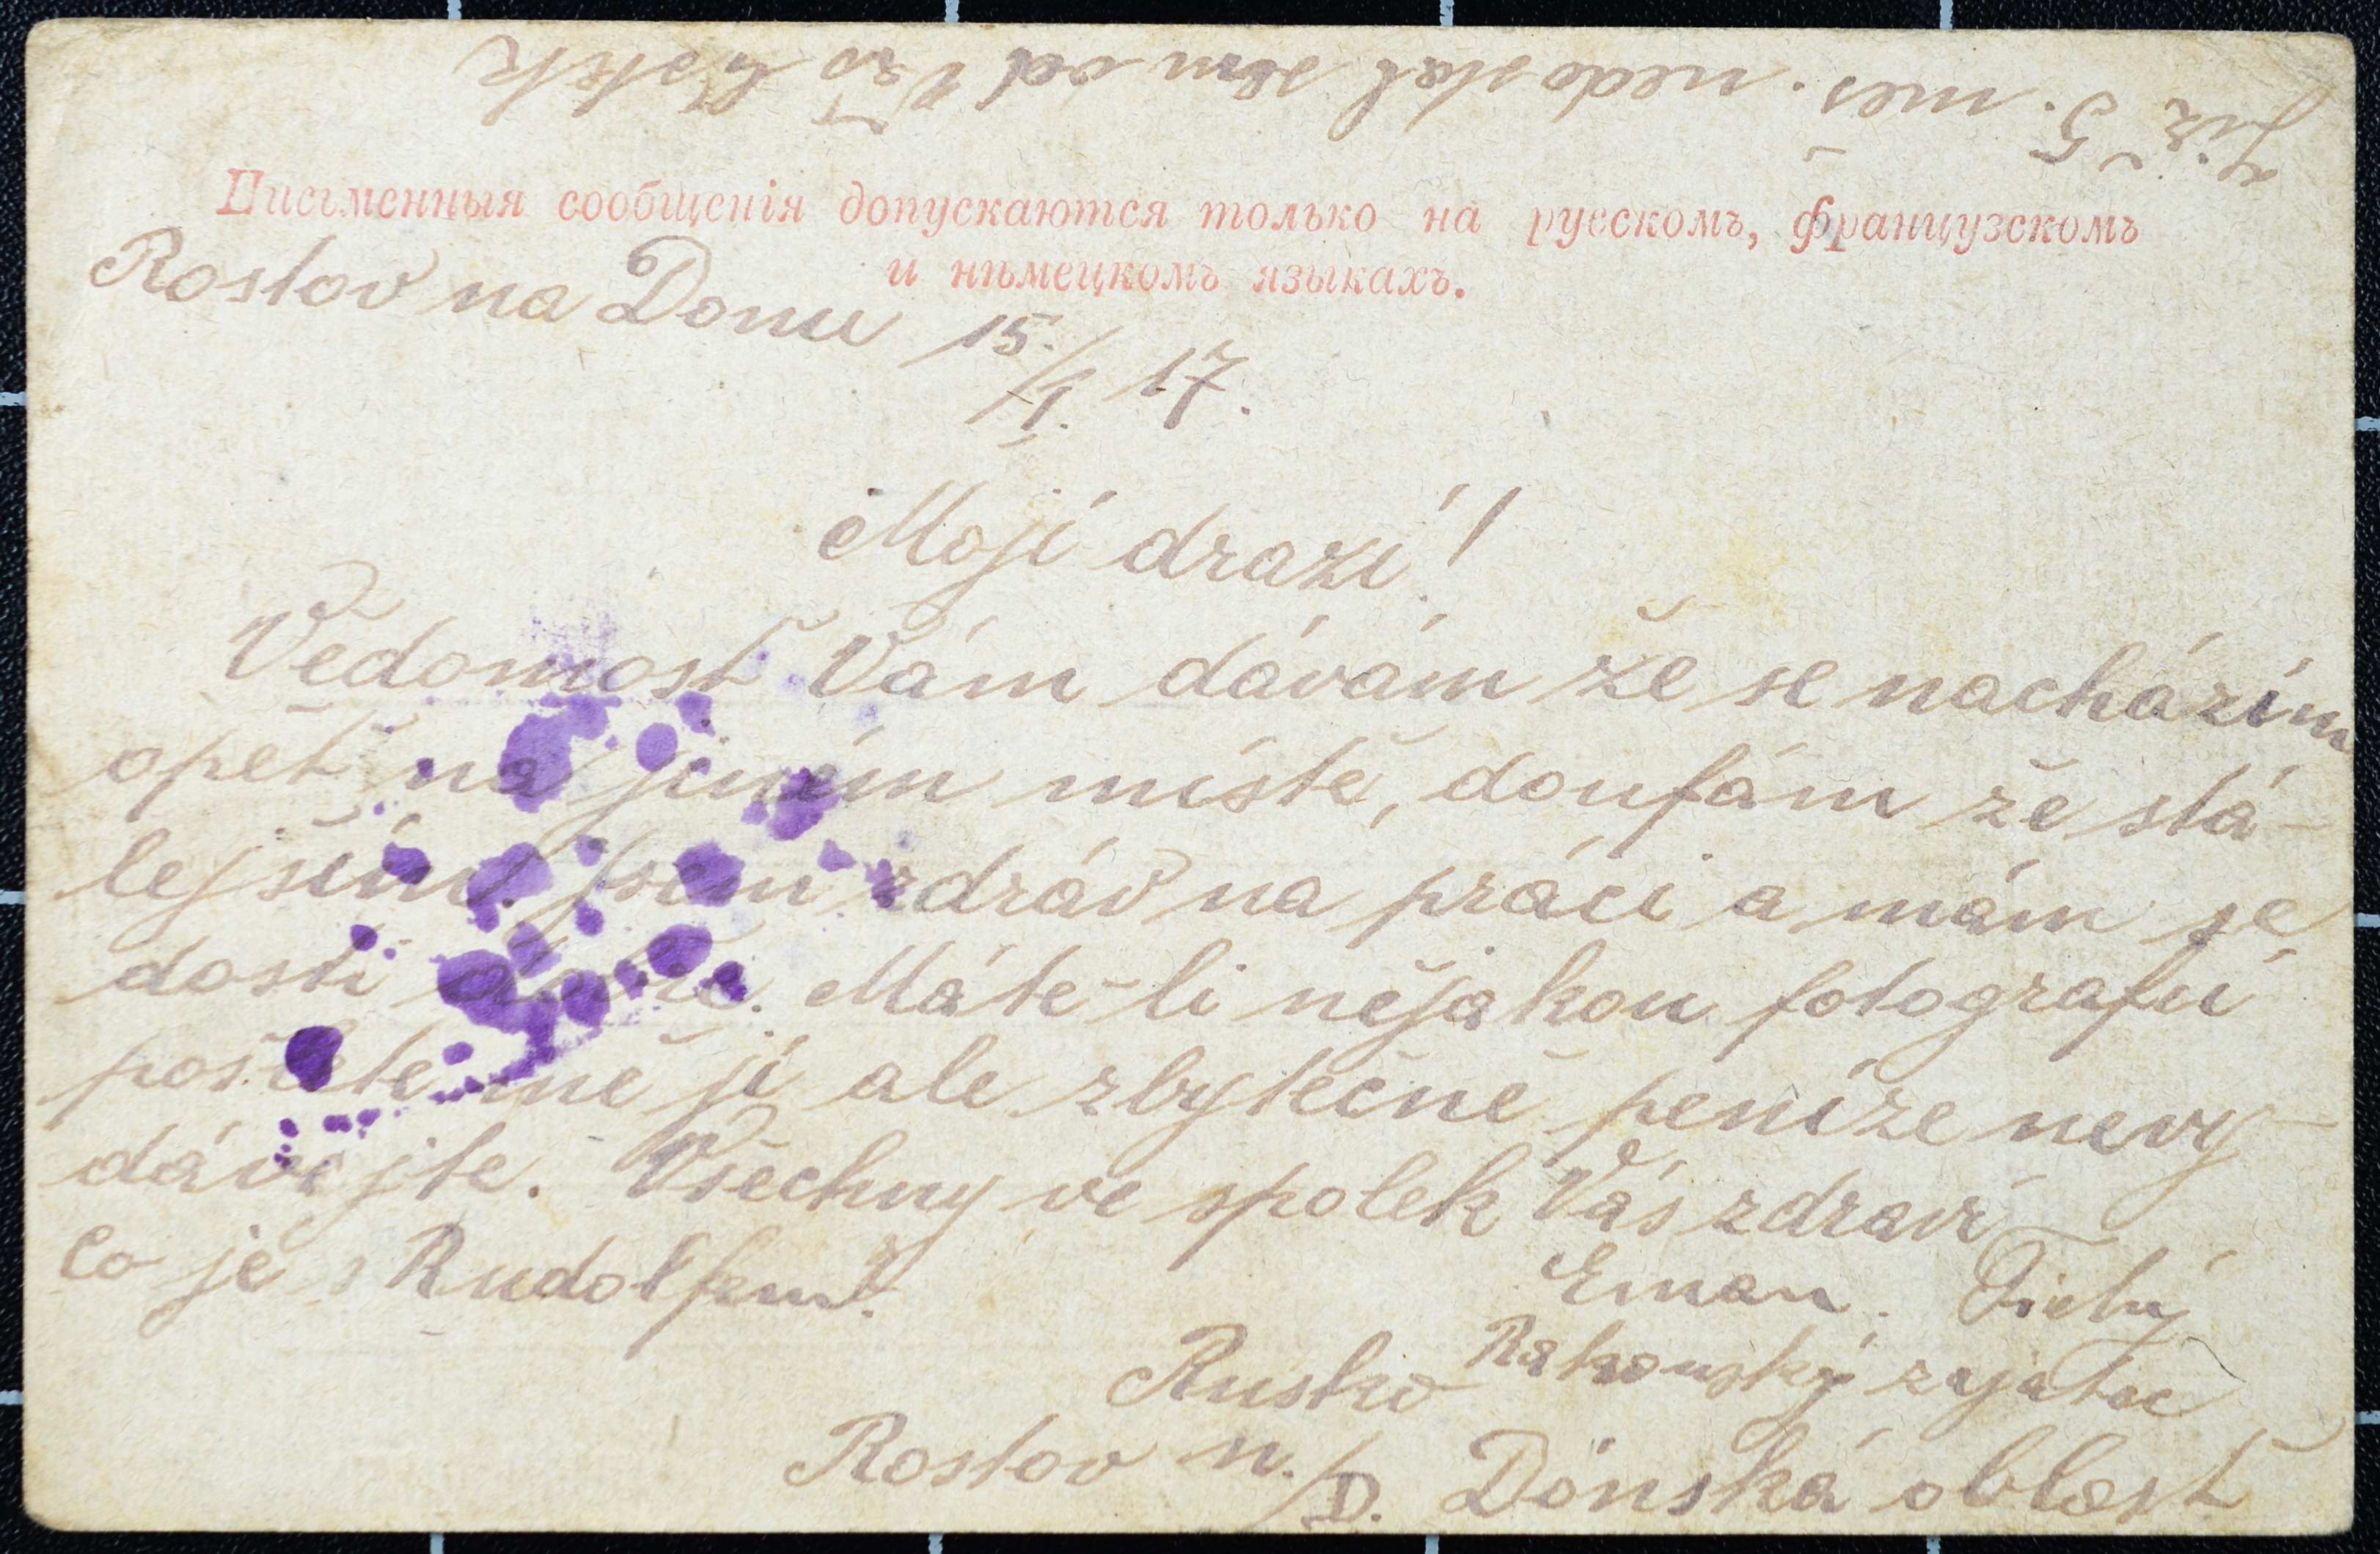 Již 5. měs. nedostal sem od Vás
Письменныя сообщенія допускаются только на русскомъ, французскомъ
и нѣмецкомъ языкахъ.
Rostov na Donu 15./I. 17.
Moji drazí!
Vědomost Vám dávám že se nacházím
opět na jiném místě, doufám že stá-
lejším. Jsem zdráv na práci a mám se
dosti dobře. Máte-li nějakou fotografii
pošlete mě ji ale zbytečně peníze nevy-
dávejte. Všechny ve spolek Vás zdraví
Co je s Rudolfem?
Eman. Tichý
Rusko Rakouský zajatec
Rostov n./D. Donská oblast